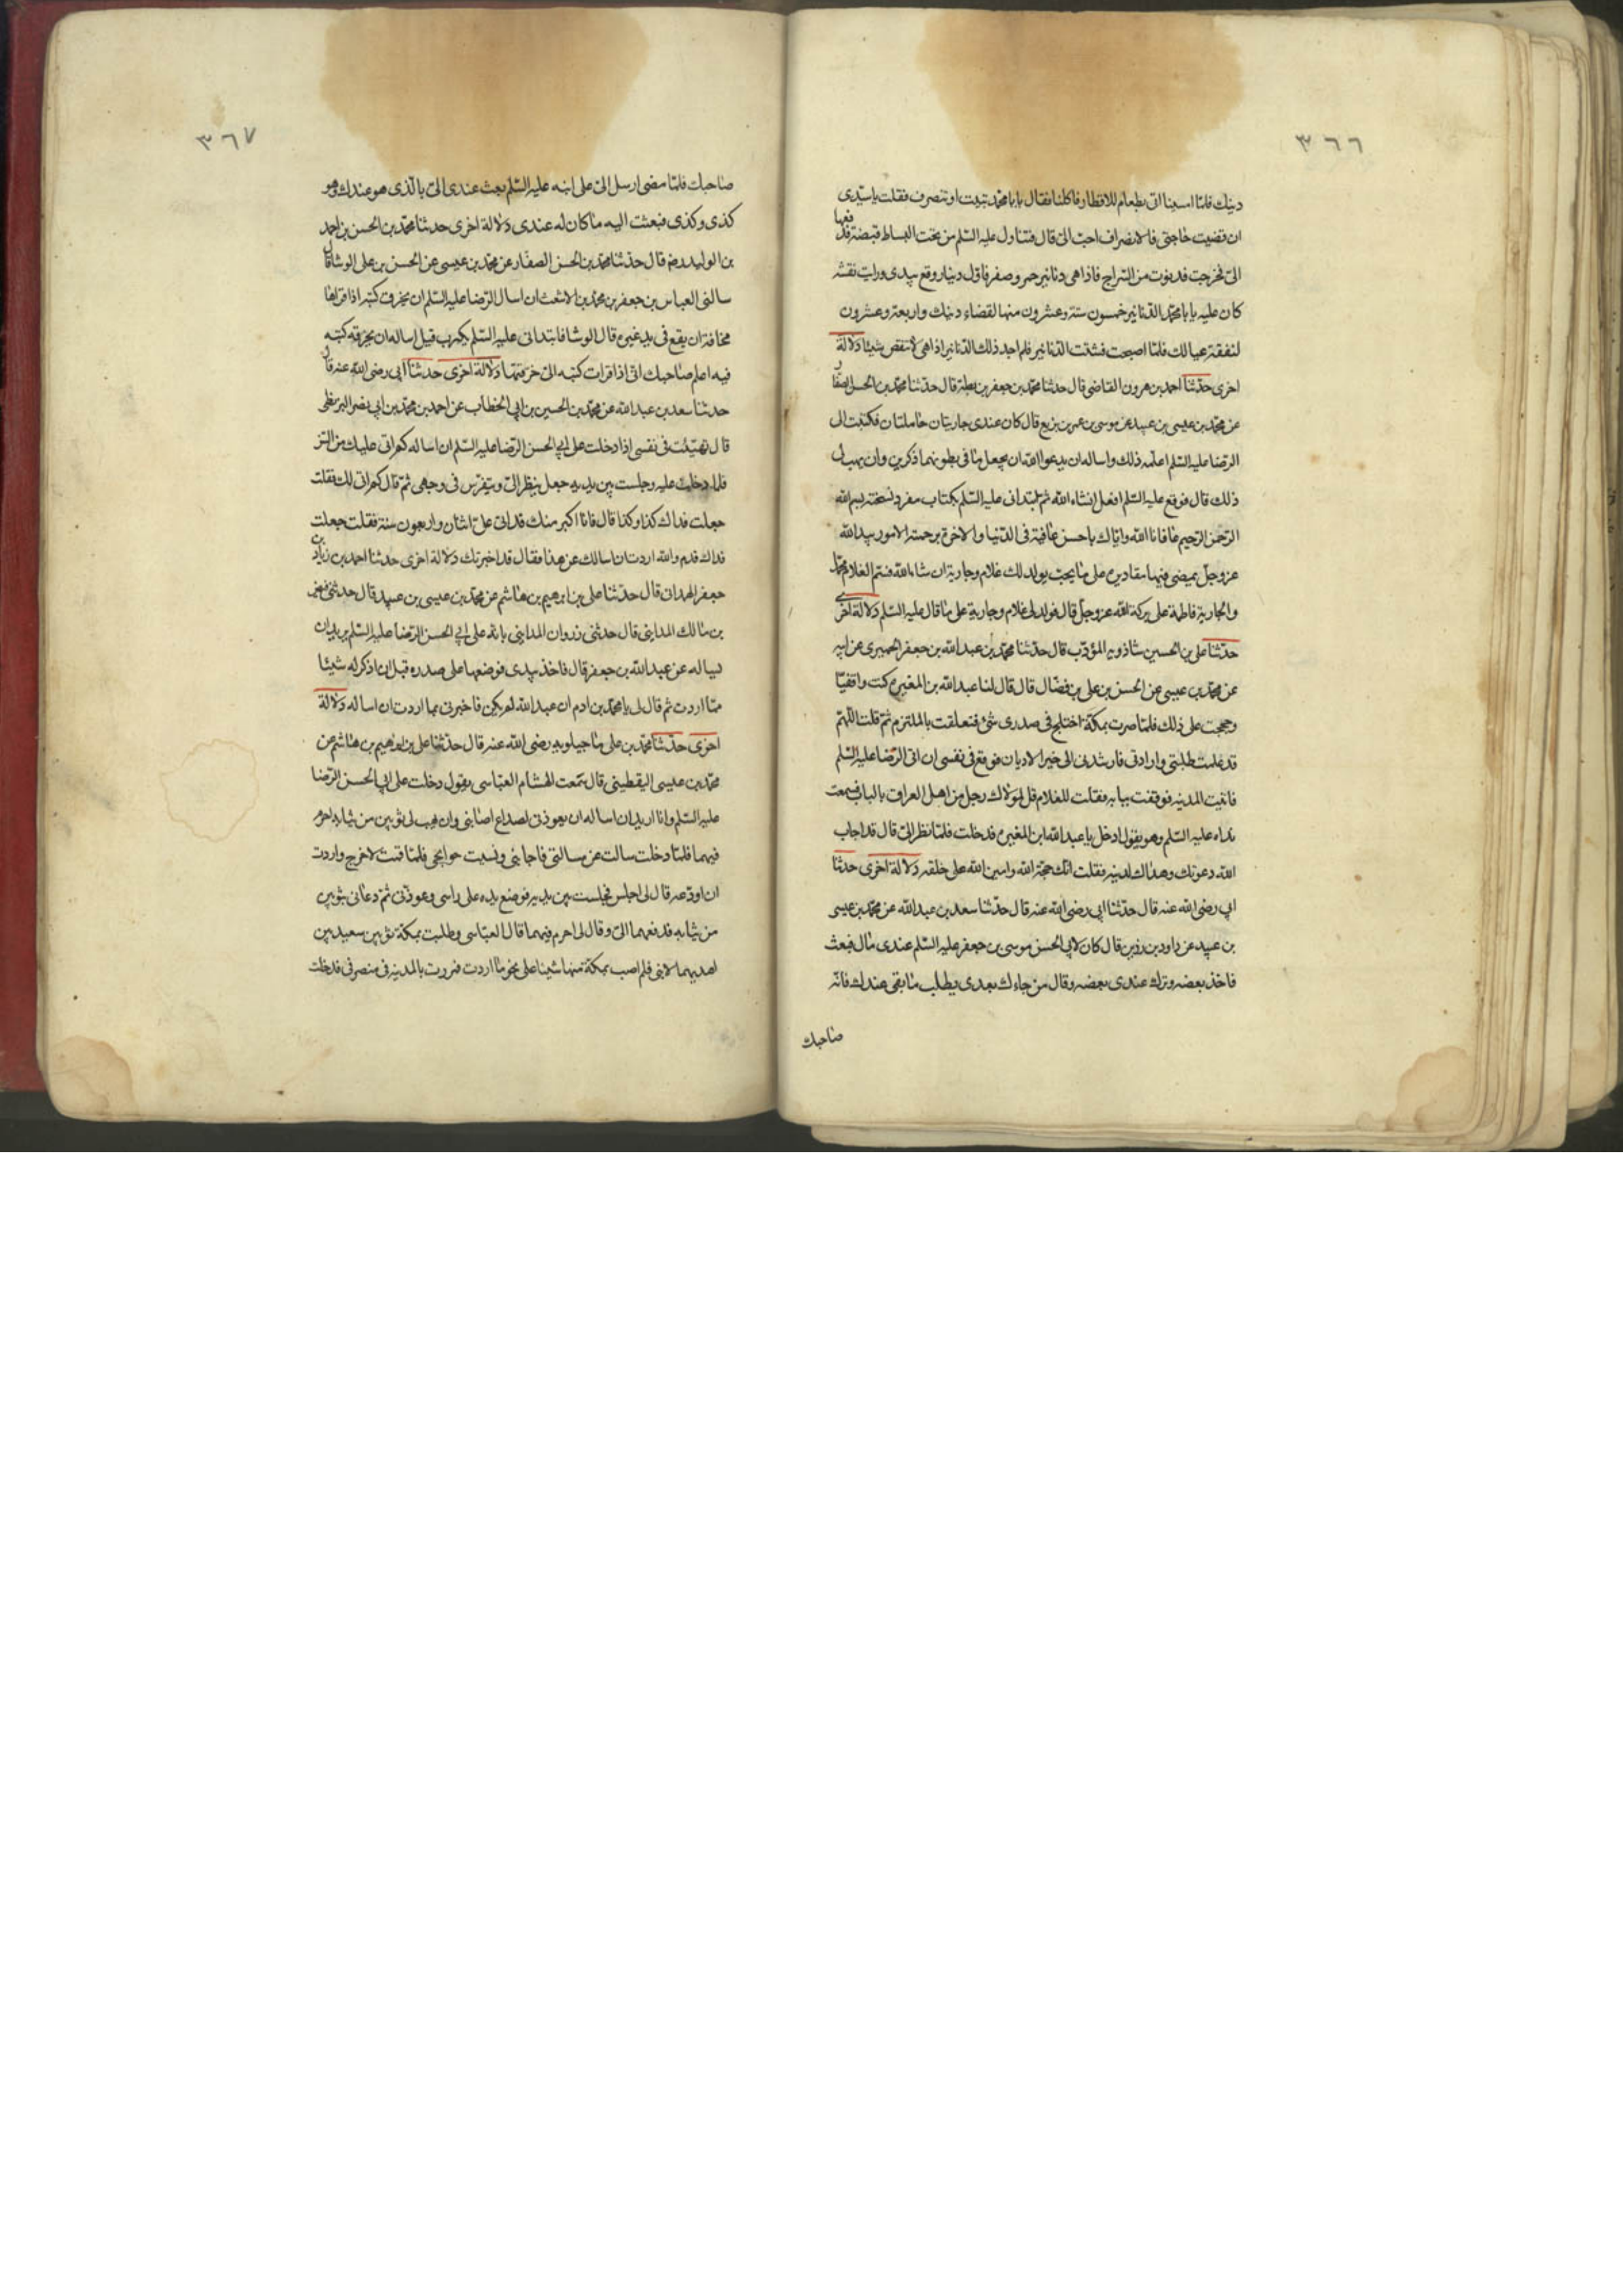 ٣٦٦
دينك فلمّا امسينا اتى بطعام للافطار فاكلنا فقال يا با محمّد تبيت او تنصرف فقلت يا سيّدى
ان قضيت حاجتى فالانصراف احبّ الىّ قال فتناول عليه السّلم من تحت البساط قبضة فدفعها
الىّ فخرجت فدنوت من السّراج فاذا هى دنانير حمر وصفر فاوّل دينار وقع بيدى ورايت نقشه
كان عليه يا با محمّد الدّنانير خمسون ستة وعشرون منها لقضاء دينك واربعة وعشرون
لنفقة عيالك فلمّا اصبحت فتشت الدّنانير فلم اجد ذلك الدّنانير اذا هى لا تنقص شيئا دلالة
اخرى حدّثنا احمد بن هرون القاضى قال حدثنا محمّد بن جعفر بن بطة قال حدّثنا محمّد بن الحسن الصفّار
عن محمّد بن عيسى بن عبيد عن موسى بن عمر بن بزيع قال كان عندى جاريتان حاملتان فكتبت الى
الرّضا عليه السّلم اعلمه ذلك واساله ان يدعو الله ان يجعل ما فى بطونهما ذكرين وان يهب لى
ذلك قال فوقع عليه السّلم افعل انشاء الله ثم ابتدانى عليه السّلم بكتاب مفرد نسخته بسم الله
الرّحمن الرّحيم عافانا الله وايّاك باحسن عافية فى الدّنيا والاخرة برحمته الامور بيد الله
عزّ وجلّ يمضى فيها مقاديره على ما يحبّ يولد لك غلام وجارية ان شاء الله فسمّ الغلام محمّدا
والجارية فاطمة على بركة الله عزّ وجلّ قال فولد لى غلام وجارية على ما قال عليه السّلم دلالة اخرى
حدّثنا على بن الحسين بن شاذويه المؤدّب قال حدّثنا محمّد بن عبد الله بن جعفر الحميرى عن ابيه
عن محمّد بن عيسى عن الحسن بن على بن فضّال قال قال لنا عبد الله بن المغيرة كنت واقفيّا
وحججت على ذلك فلمّا صرت بمكّة اختلج فى صدرى شئ فتعلقت بالملتزم ثمّ قلت اللّهمّ
قد علمت طلبتى وارادتى فارشدنى الى خير الاديان فوقع فى نفسى ان اتى الرّضا عليه السّلم
فاتيت المدينه فوقفت ببابه فقلت للغلام قل لمولاك رجل من اهل العراق بالباب فسمعت
نداه عليه السّلم وهو يقول ادخل يا عبد الله ابن المغيرة فدخلت فلمّا نظر الىّ قال قد اجاب
الله دعوتك وهداك لدينه فقلت انّك حجّة الله وامين الله على خلقه دلالة اخرى حدثنا
ابى رضى الله عنه قال حدّثنا ابى رضى الله عنه قال حدّثنا سعد بن عبد الله عن محمّد بن عيسى
بن عبيد عن داود بن رزين قال كان لابى الحسن موسى بن جعفر عليه السّلم عندى مال فبعث
فاخذ بعضه وترك عندى بعضه وقال من جاءك بعدى يطلب ما بقى عندك فانّه
صاحبك
٣٦٧
صاحبك فلمّا مضى ارسل الىّ على ابنه عليه السّلم بعث عندى الىّ بالّذى هو عندك وهو
كذى وكذى فبعثت اليه ما كان له عندى دلالة اخرى حدثنا محمّد بن الحسن بن احمد
بن الوليد رضه قال حدّثنا محمّد بن الحسن الصفّار عن محمّد بن عيسى عن الحسن بن على الوشا قال
سالنى العباس بن جعفر بن محمّد بن الاشعث ان اسال الرّضا عليه السّلم ان يخرق كتبه اذا قراها
مخافة ان يقع فى يد غيرى قال الوشا فابتدانى عليه السّلم بكتاب قبل اساله ان يخرق كتبه
فيه اعلم صاحبك انّى اذا قرات كتبه الىّ خرقتها دلالة اخرى حدثنا ابى رضى الله عنه قال
حدثنا سعد بن عبد الله عن محمّد بن الحسين بن ابى الخطاب عن احمد بن محمّد بن ابى نصر البزنطى
قال تهيّئت فى نفسى اذا دخلت على ابى الحسن الرّضا عليه السّلم ان اساله كم اتى عليك من السّن
فلمّا دخلت عليه وجلست بين يديه جعل ينظر الىّ ويتفرّس فى وجهى ثمّ قال كم اتى لك فقلت
جعلت فداك كذا وكذا قال فانا اكبر منك قد اتى علىّ اثنان واربعون سنة فقلت جعلت
فداك قد والله اردت ان اسالك عن هذا فقال قد اخبرتك دلالة اخرى حدثنا احمد بن زياد بن
جعفر الهمدانى قال حدّثنا على بن ابرهيم بن هاشم عن محمّد بن عيسى بن عبيد قال حدثنى فيض
بن مالك المداينى قال حدثنى زروان المداينى بانّه على ابى الحسن الرّضا عليه السّلم يريد ان
يساله عن عبد الله بن جعفر قال فاخذ بيدى فوضعها على صدره قبل ان اذكر له شيئا
ممّا اردت ثم قال لى يا محمّد بن ادم ان عبد الله لم يكن فاخبرنى بما اردت ان اساله دلالة
اخرى حدّثنا محمّد بن على ماجيلويه رضى الله عنه قال حدّثنا على بن ابرهيم بن هاشم عن
محمّد بن عيسى اليقطينى قال سمعت الهشام العبّاسى يقول دخلت على ابى الحسن الرّضا
عليه السّلم وانا اريد ان اساله ان يعوذنى لصداع اصابنى وان يهب لى ثوبين من ثيابه احرم
فيهما فلمّا دخلت سالت عن مسالتى فاجابنى ونسيت حوايجى فلمّا قمت لاخرج واردت
ان اودّعه قال لى اجلس فجلست بين يديه فوضع يده على راسى وعوذنى ثمّ دعا لى بثوبين
من ثيابه فدفعهما الىّ وقال لى احرم فيهما قال العبّاسى وطلبت بمكّة ثوبين سعيديين
اهديهما لابنى فلم اصب بمكّة منها شيئا على نحو ما اردت فمررت بالمدينه فى منصرفى فدخلت